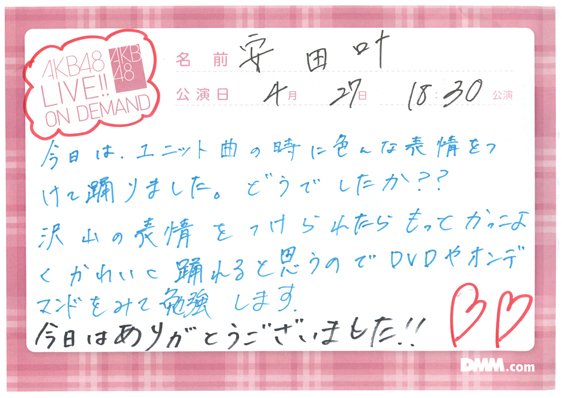 AKB48
LIVE!!
ON DEMAND
AKB
48
名前 安田叶
公演日 4月 27日 18:30 公演
今日は、ユニット曲の時に色んな表情をつ
けて踊りました。どうでしたか??
沢山の表情をつけられたらもっとかっこよ
くかわいく踊れると思うのでDVDやオンデ
マンドをみて勉強します.
今日はありがとうございまもた!!
DMM.com